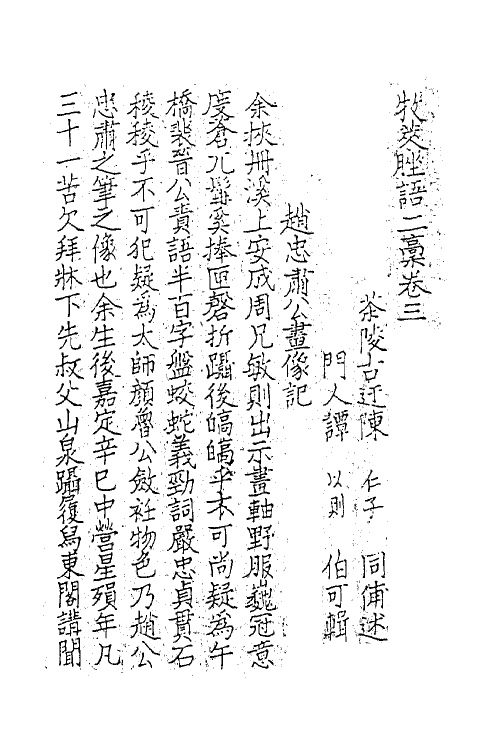 牧萊脞語二藁卷三
茶陵古迂陳 仁子 同俌述
門人譚 以則 伯可輯
趙忠肅公畫像記
余挾冊溪上安成周兄敏則出示畫軸野服巍冠意
度滄兀髯奚捧匜磬折躡後皜皜乎不可尚疑為午
橋裴晉公賛語半百字盤蛟蛇義勁詞嚴忠貞貫石
稜稜乎不可犯疑為太師顔魯公斂衽物色乃趙公
忠肅之筆之像也余生後嘉定辛巳中營星殞年凡
三十一苦欠拜牀下先叔父山泉躡履舄東閣講聞